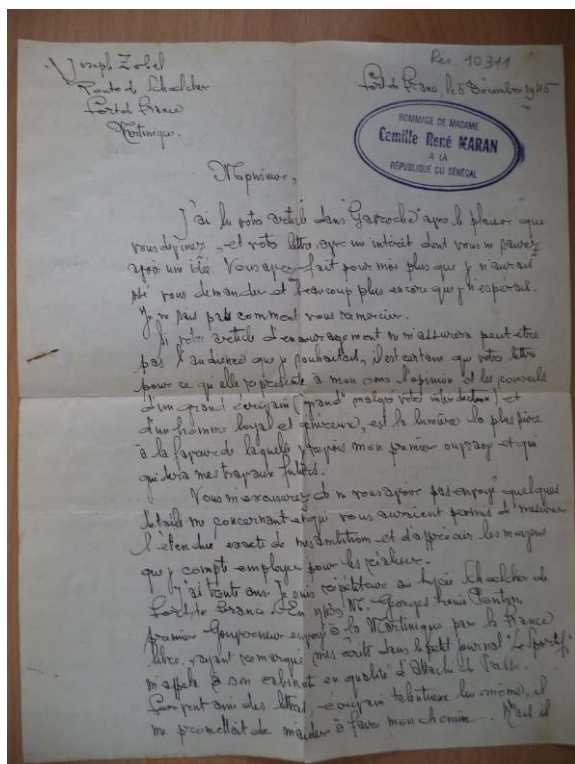 Joseph Zobel
Route de Schoelcher
Fort de France
Martinique.
Rés. 10311
Fort de France, le 5 Décembre 1945
HOMMAGE DE MADAME
Camille René MARAN
A LA
RÉPUBLIQUE DU SÉNÉGAL
Monsieur,
J'ai lu votre article dans "Gavroche" avec le plaisir que
vous devinez, et votre lettre avec un intérêt dont vous ne pouvez
avoir une idée. Vous avez fait pour moi plus que je n'aurais
osé vous demander et beaucoup plus encore que je n'espérais.
Je ne sais pas comment vous remercier.
Si votre article d'encouragement ne m'assurera peut-être
pas l'audience que je souhaitais, il est certain que votre lettre
pour ce qu'elle représente à mon sens l'opinion et les conseils
d'un grand écrivain ("grand" malgré votre interdiction) et
d'un homme loyal et généreux, est la lumière la plus
à la faveur de laquelle je mon premier ouvrage et qui
guidera mes travaux futurs.
Vous m'excuserez de ne vous avoir pas envoyé quelques
détails me concernant et qui vous auraient permis de mesurer
l'étendue exacte de mes ambition et d'apprécier les moyens
que je compte employer pour les réaliser.
J'ai trente ans. Je suis répétiteur au Lycée Schoelcher de
Fort de France. En 1943 M. Georges Louis Ponton,
premier Gouverneur envoyé à la Martinique par la France
libre, ayant remarqué mes écrits dans le petit journal "Le Sportif"
m'appela à son cabinet en qualité d'Attaché de Presse.
Fervent ami des lettres, écrivain talentueux lui même, il
me promettait de m'aider à faire mon chemin. Mais il